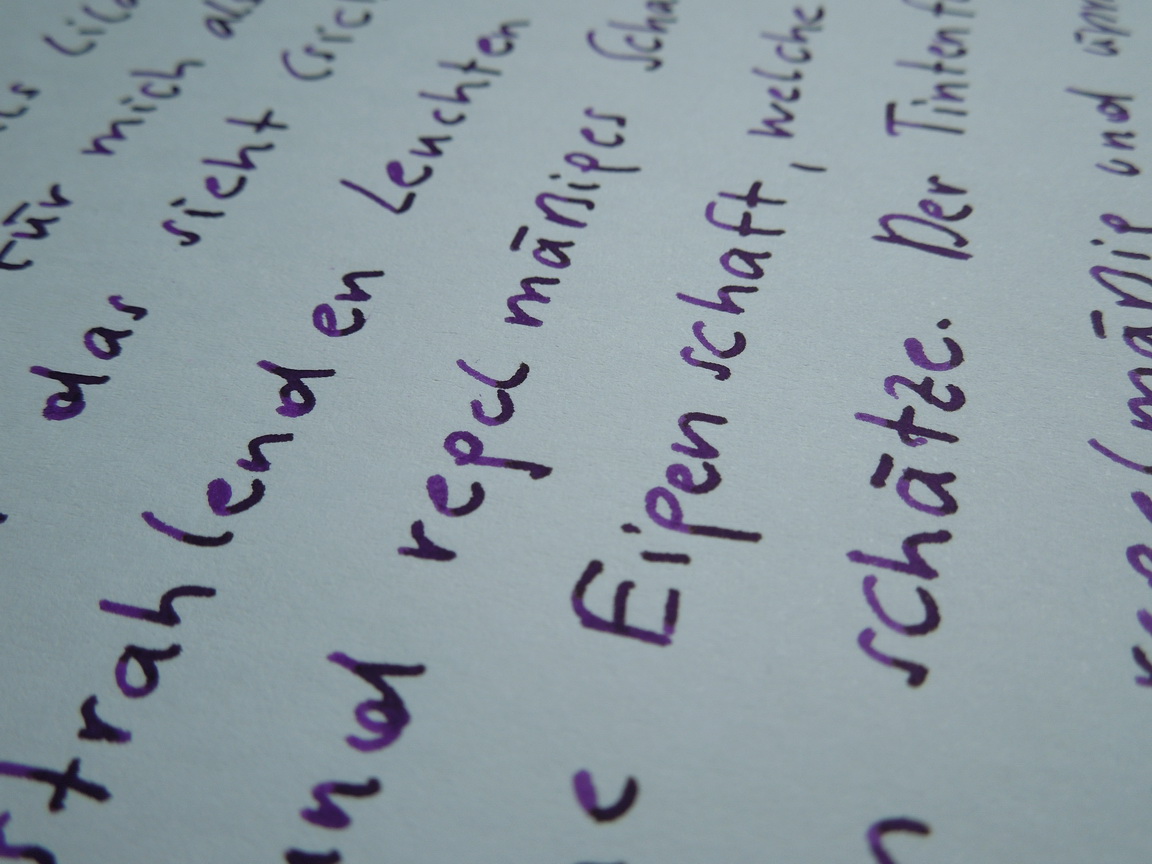 für mich als
das sicht
strahlenden Leuchten
und regelmäßiges
Eigenschaft, welche
schätze. Der
mäßig und